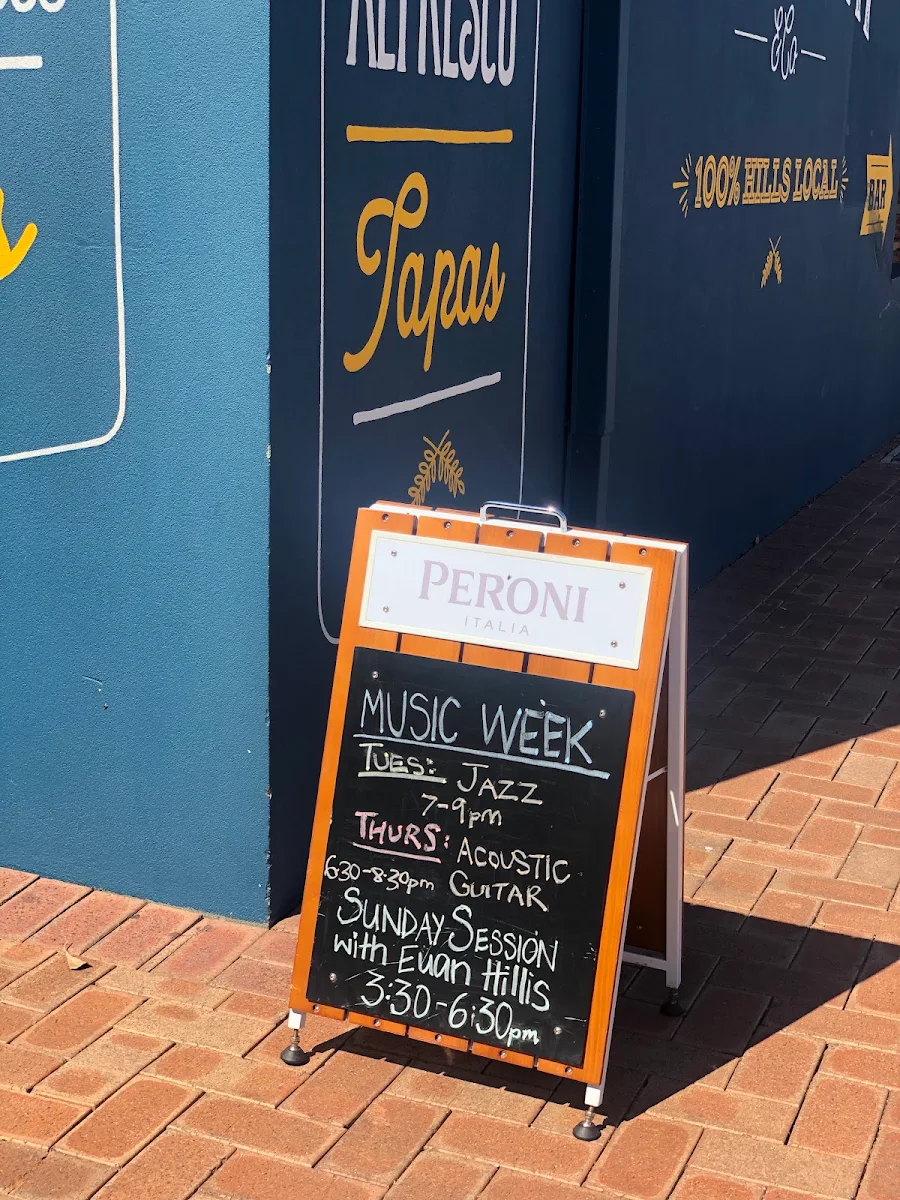 ALFRESCO
Tapas
& Co.
100% HILLS LOCAL
BAR
PERONI
ITALIA
MUSIC WEEK
TUES: JAZZ
7-9pm
THURS: ACOUSTIC
6:30-8:30pm GUITAR
SUNDAY SESSION
with Euan Hillis
3:30-6:30pm